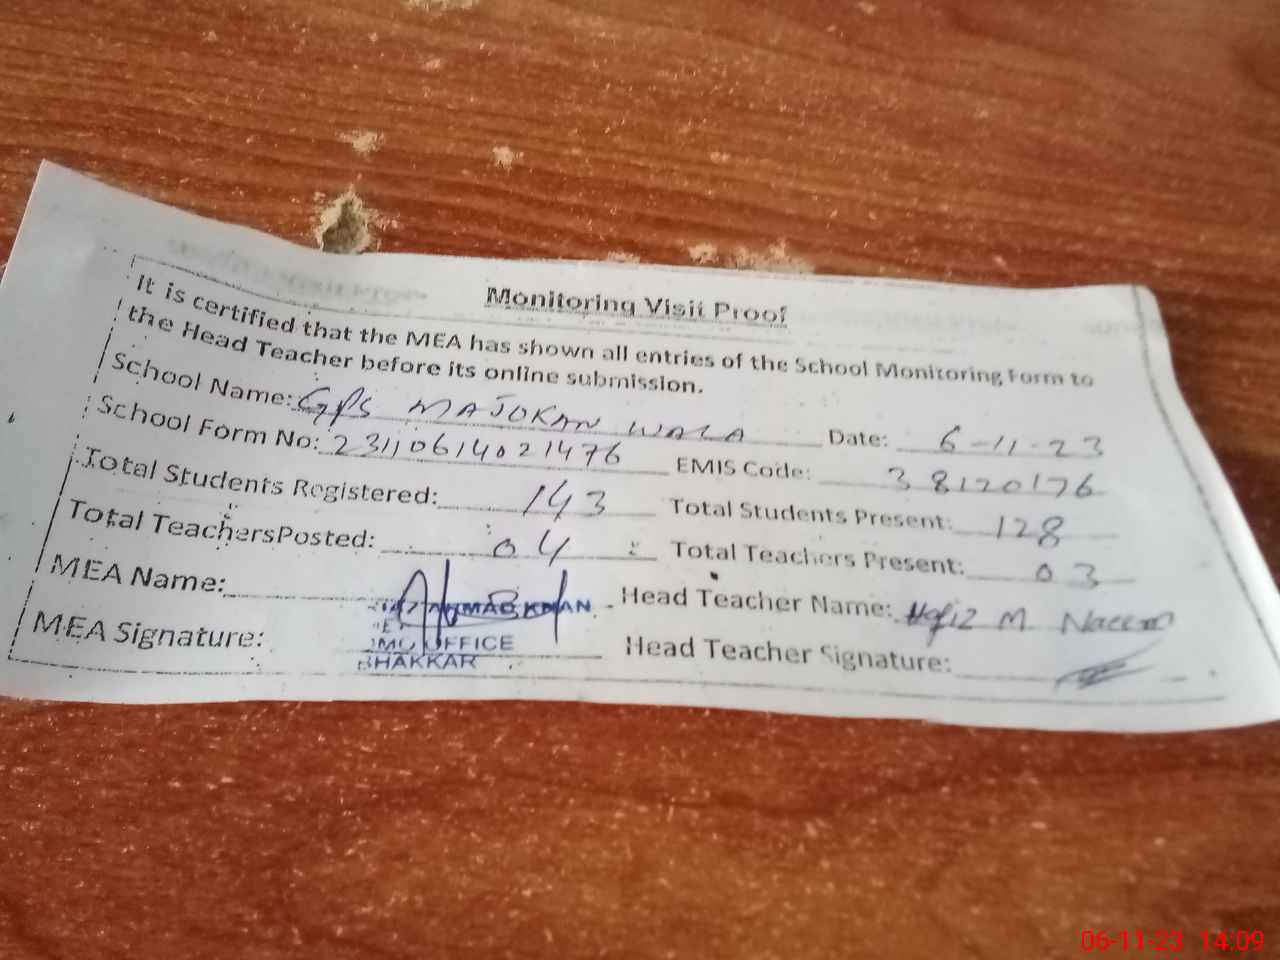 Monitoring Visit Proof
It is certified that the MEA has shown all entries of the School Monitoring Form to
the Head Teacher before its online submission.
School Name: GPS MAJOKAN WALA Date: 6-11-23
School Form No: 23110614021476 EMIS Code: 38120176
Total Students Registered: 143 Total Students Present: 128
Total TeachersPosted: 04 Total Teachers Present: 03
MEA Name: AHMAD KHAN Head Teacher Name: Hafiz M. Naeem
MEA Signature: OFFICE Head Teacher Signature:
BHAKKAR
06-11-23 14:09